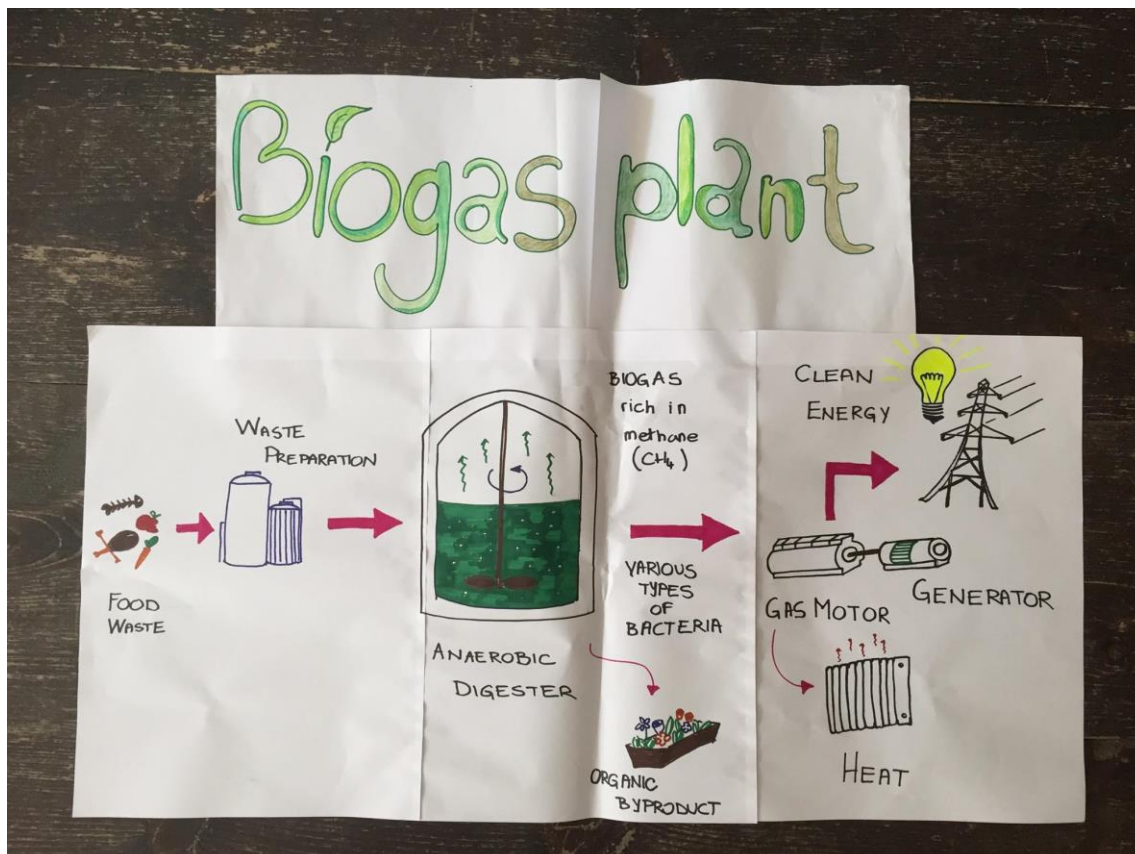 Biogas plant
WASTE
PREPARATION
FOOD
WASTE
ANAEROBIC
DIGESTER
BIOGAS
rich in
methane
(CH₄)
VARIOUS
TYPES
OF
BACTERIA
ORGANIC
BYPRODUCT
CLEAN
ENERGY
GAS MOTOR
GENERATOR
HEAT